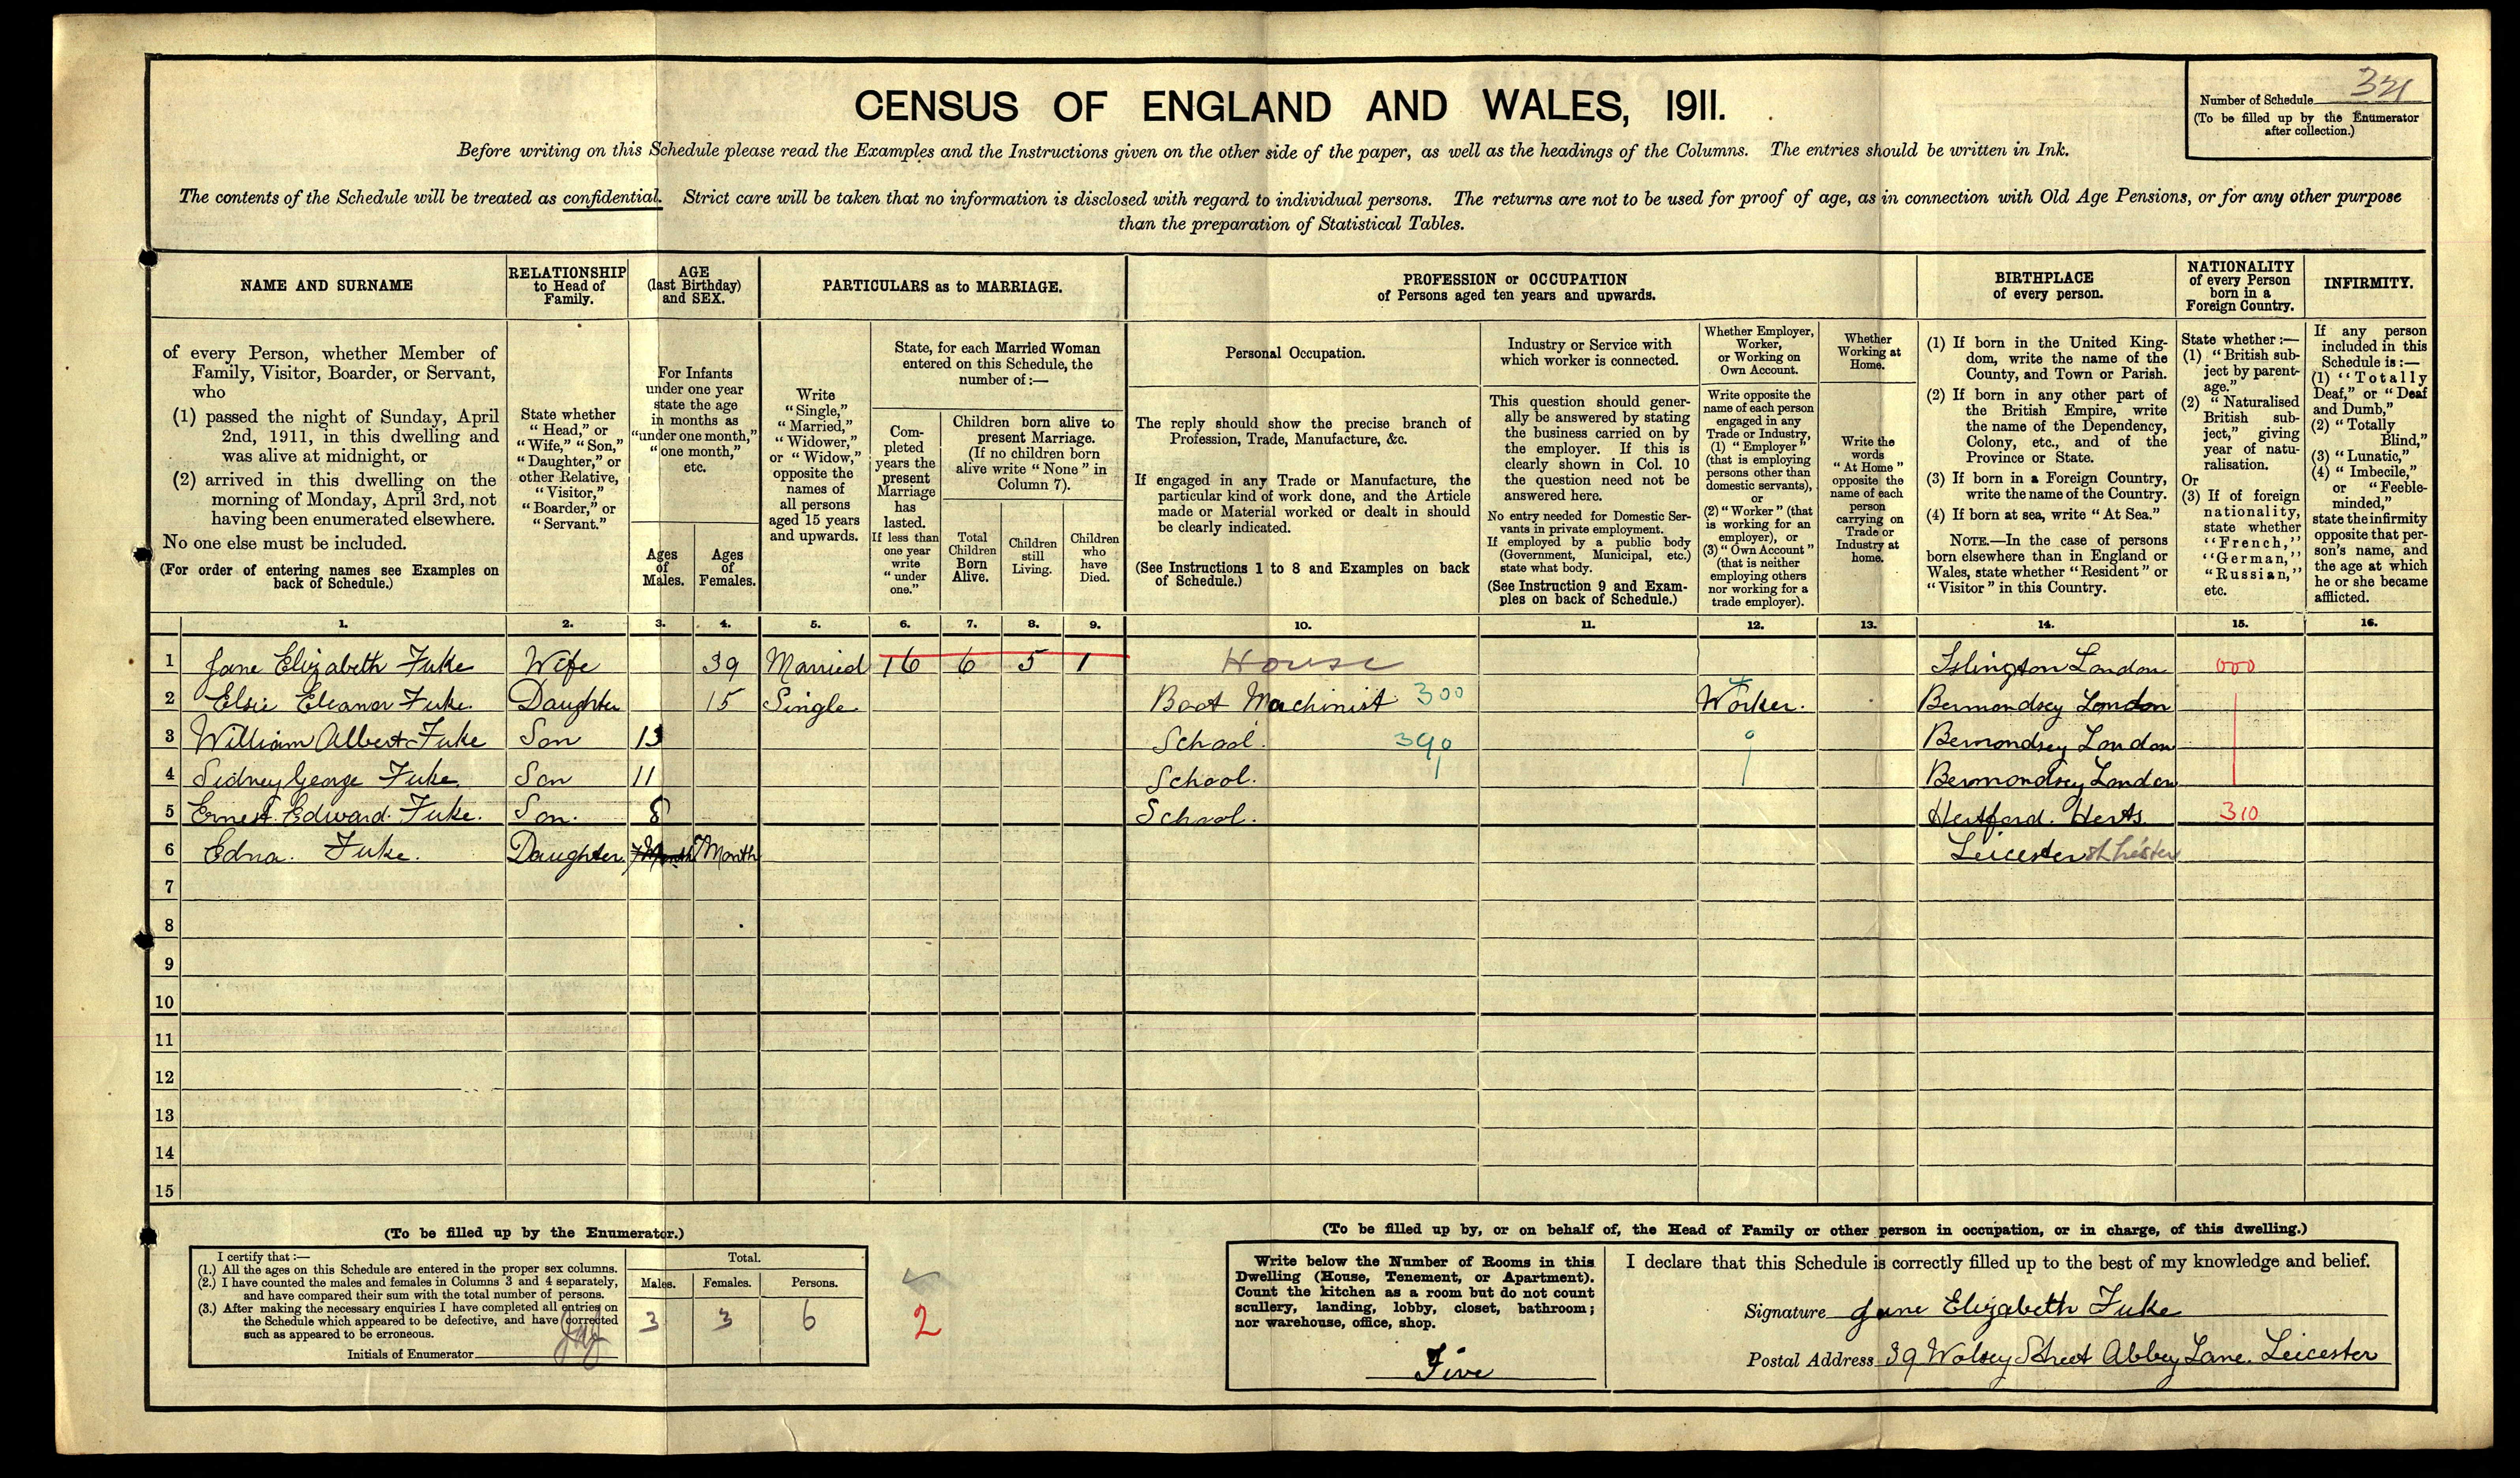 CENSUS OF ENGLAND AND WALES, 1911.
Number of Schedule 321
(To be filled up by the Enumerator
after collection.)
Before writing on this Schedule please read the Examples and the Instructions given on the other side of the paper, as well as the headings of the Columns. The entries should be written in Ink.
The contents of the Schedule will be treated as confidential. Strict care will be taken that no information is disclosed with regard to individual persons. The returns are not to be used for proof of age, as in connection with Old Age Pensions, or for any other purpose
than the preparation of Statistical Tables.
NAME AND SURNAME
of every Person, whether Member of
Family, Visitor, Boarder, or Servant,
who
(1) passed the night of Sunday, April
2nd, 1911, in this dwelling and
was alive at midnight, or
(2) arrived in this dwelling on the
morning of Monday, April 3rd, not
having been enumerated elsewhere.
No one else must be included.
(For order of entering names see Examples on
back of Schedule.)
RELATIONSHIP
to Head of
Family.
State whether
"Head," or
"Wife," "Son,"
"Daughter," or
other Relative,
"Visitor,"
"Boarder," or
"Servant."
AGE
(last Birthday)
and SEX.
For Infants
under one year
state the age
in months as
"under one month,"
"one month,"
etc.
Ages
of
Males.
Ages
of
Females.
PARTICULARS as to MARRIAGE.
Write
"Single,"
"Married,"
"Widower,"
or "Widow,"
opposite the
names of
all persons
aged 15 years
and upwards.
State, for each Married Woman
entered on this Schedule, the
number of:—
Com-
pleted
years the
present
Marriage
has
lasted.
If less than
one year
write
"under
one."
Children born alive to
present Marriage.
(If no children born
alive write "None" in
Column 7).
Total
Children
Born
Alive.
Children
still
Living.
Children
who
have
Died.
PROFESSION or OCCUPATION
of Persons aged ten years and upwards.
Personal Occupation.
The reply should show the precise branch of
Profession, Trade, Manufacture, &c.
If engaged in any Trade or Manufacture, the
particular kind of work done, and the Article
made or Material worked or dealt in should
be clearly indicated.
(See Instructions 1 to 8 and Examples on back
of Schedule.)
Industry or Service with
which worker is connected.
This question should gener-
ally be answered by stating
the business carried on by
the employer. If this is
clearly shown in Col. 10
the question need not be
answered here.
No entry needed for Domestic Ser-
vants in private employment.
If employed by a public body
(Government, Municipal, etc.)
state what body.
(See Instruction 9 and Exam-
ples on back of Schedule.)
Whether Employer,
Worker,
or Working on
Own Account.
Write opposite the
name of each person
engaged in any
Trade or Industry,
(1) "Employer"
(that is employing
persons other than
domestic servants),
or
(2) "Worker" (that
is working for an
employer), or
(3) "Own Account"
(that is neither
employing others
nor working for a
trade employer).
Whether
Working at
Home.
Write the
words
"At Home"
opposite the
name of each
person
carrying on
Trade or
Industry at
home.
BIRTHPLACE
of every person.
(1) If born in the United King-
dom, write the name of the
County, and Town or Parish.
(2) If born in any other part of
the British Empire, write
the name of the Dependency,
Colony, etc., and of the
Province or State.
(3) If born in a Foreign Country,
write the name of the Country.
(4) If born at sea, write "At Sea."
NOTE.—In the case of persons
born elsewhere than in England or
Wales, state whether "Resident" or
"Visitor" in this Country.
NATIONALITY
of every Person
born in a
Foreign Country.
State whether:—
(1) "British sub-
ject by parent-
age."
(2) "Naturalised
British sub-
ject," giving
year of natu-
ralisation.
Or
(3) If of foreign
nationality,
state whether
"French,"
"German,"
"Russian,"
etc.
INFIRMITY.
If any person
included in this
Schedule is:—
(1) "Totally
Deaf," or "Deaf
and Dumb,"
(2) "Totally
Blind,"
(3) "Lunatic,"
(4) "Imbecile,"
or "Feeble-
minded,"
state the infirmity
opposite that per-
son's name, and
the age at which
he or she became
afflicted.
1. 2. 3. 4. 5. 6. 7. 8. 9. 10. 11. 12. 13. 14. 15. 16.
1 Jane Elizabeth Fuke Wife 39 Married 16 6 5 1 House Islington London 000
2 Elsie Eleanor Fuke. Daughter 15 Single Boot Machinist 300 Worker. Bermondsey London
3 William Albert Fuke Son 13 School. 390 9 Bermondsey London
4 Sidney George Fuke. Son 11 School. Bermondsey London
5 Ernest Edward Fuke. Son. 8 School. Hertford. Herts. 310
6 Edna. Fuke. Daughter 7 Month 7 Month Leicester
7
8
9
10
11
12
13
14
15
(To be filled up by the Enumerator.)
I certify that:—
(1.) All the ages on this Schedule are entered in the proper sex columns.
(2.) I have counted the males and females in Columns 3 and 4 separately,
and have compared their sum with the total number of persons.
(3.) After making the necessary enquiries I have completed all entries on
the Schedule which appeared to be defective, and have corrected
such as appeared to be erroneous.
Initials of Enumerator
Total.
Males. Females. Persons.
3 3 6
2
(To be filled up by, or on behalf of, the Head of Family or other person in occupation, or in charge, of this dwelling.)
Write below the Number of Rooms in this
Dwelling (House, Tenement, or Apartment).
Count the kitchen as a room but do not count
scullery, landing, lobby, closet, bathroom;
nor warehouse, office, shop.
Five
I declare that this Schedule is correctly filled up to the best of my knowledge and belief.
Signature Jane Elizabeth Fuke
Postal Address 39 Wolsey Street Abbey Lane. Leicester